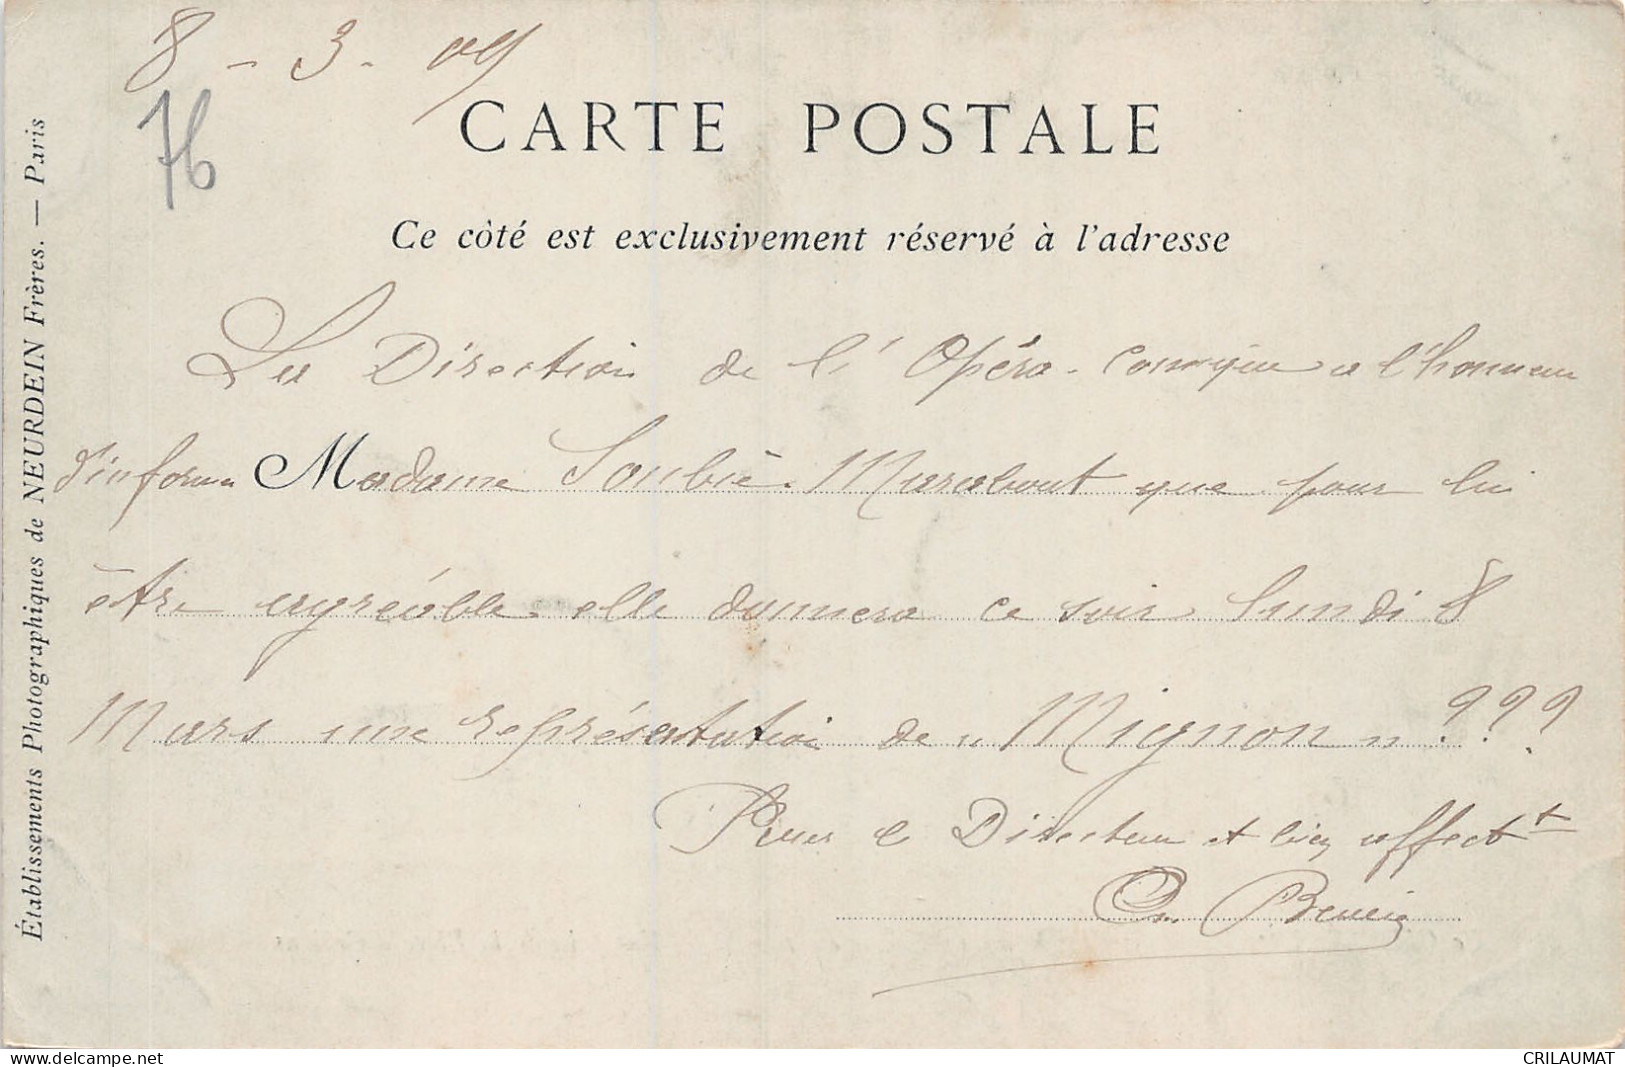 8 - 3 - 09
76
CARTE POSTALE
Ce côté est exclusivement réservé à l'adresse
La Direction de l'Opéra-Comique a l'honneur
d'informer Madame Soubiè-Marabout que pour lui
être agréable elle donnera ce soir lundi 8
Mars une représentation de " Mignon " ???
Pour le Directeur et bien affectt
Établissements Photographiques de NEURDEIN Frères. — Paris
delcampe.net
CRILAUMAT